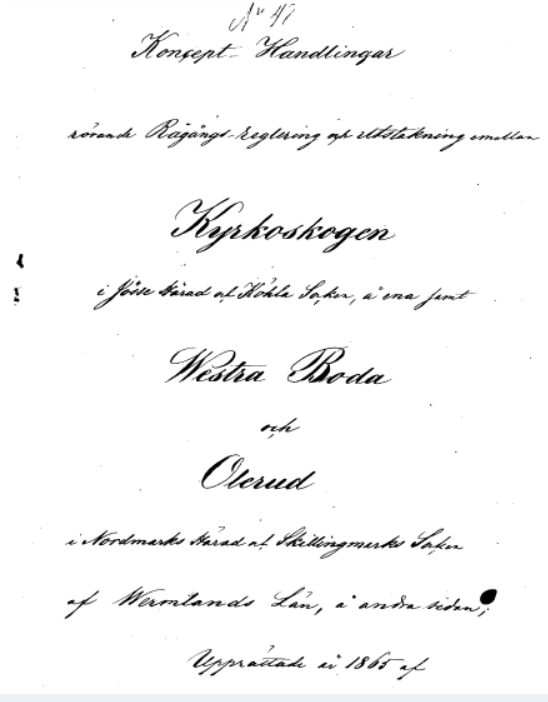 No 47
Koncept-Handlingar
rörande Rågångs-reglering och Utstakning emellan
Kyrkoskogen
i Jösse Härad och Köhla Socken, å ena samt
Westra Boda
och
Olerud
i Nordmarks Härad och Skillingmarks Socken
af Wermlands Län, å andra sidan;
Upprättade år 1865 af